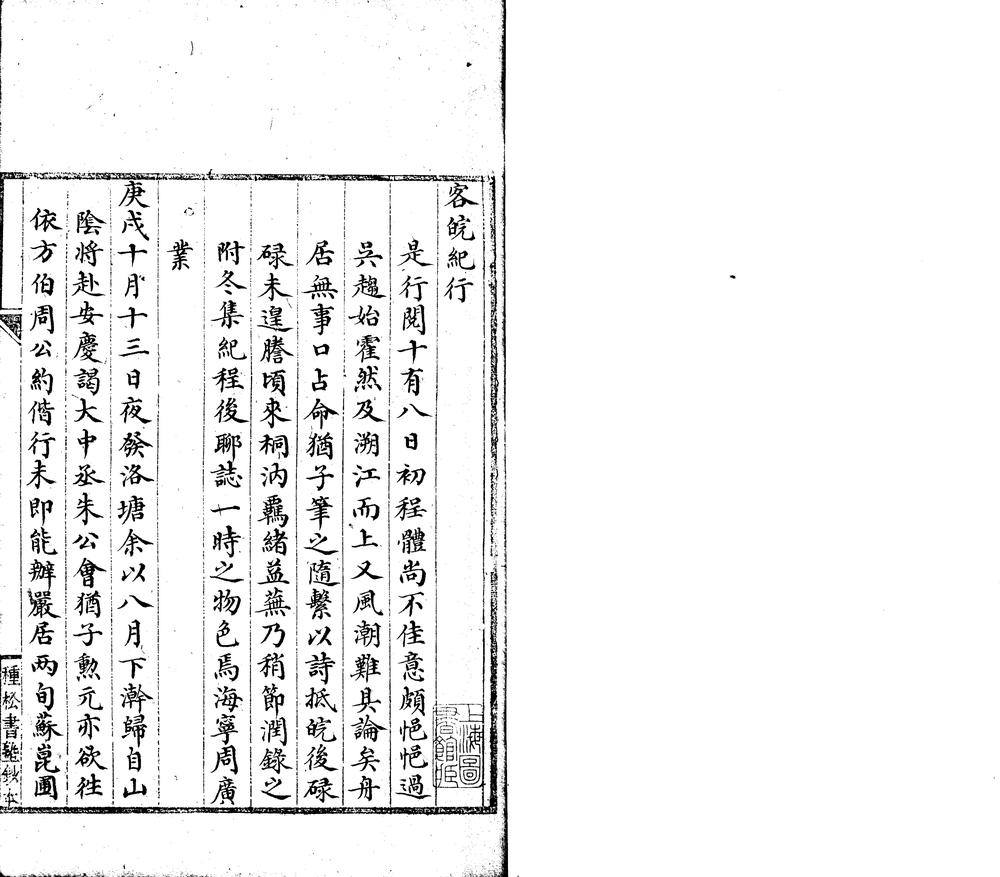 客皖紀行
是行閱十有八日初程體尚不佳意頗悒悒過
吳趨始霍然及溯江而上又風潮難具論矣舟
居無事口占命猶子筆之隨繫以詩抵皖後碌
碌未遑謄頃來桐汭羈緒益蕪乃稍節潤錄之
附冬集紀程後聊誌一時之物色焉海寧周廣
業
庚戌十月十三日夜發洛塘余以八月下澣歸自山
陰将赴安慶謁大中丞朱公會猶子勲元亦欲往
依方伯周公約偕行未即能辦嚴居兩旬蘇崑圃
種松書塾鈔本
上海圖書館藏